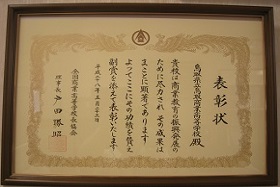 表彰状
鳥取県立鳥取商業高等学校殿
貴校は商業教育の振興発展の
ために尽力されその成果は
まことに顕著であります
よってここにその功績を賛え
副賞を添えて表彰いたします
平成二十八年五月二十三日
全国商業高等学校長協会
理事長 戸田勝昭